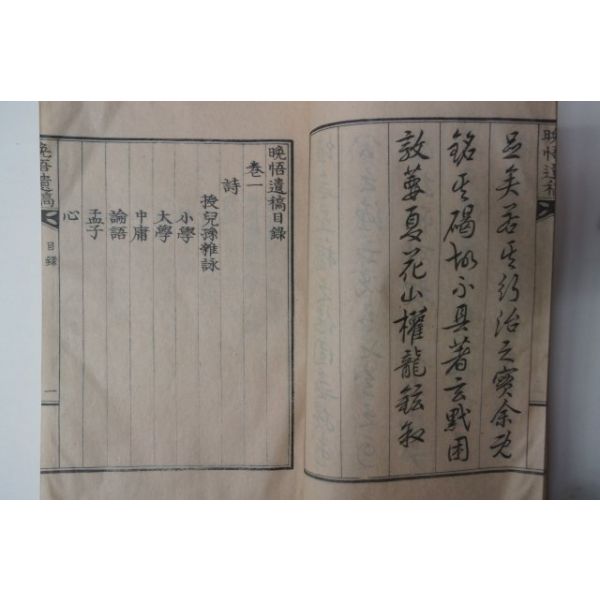 晚悟遺稿
矣若其行治之實余既
銘其碣故不具著玄黓困
敦夏花山權龍鉉叙
晚悟遺稿目錄
卷一
詩
授兒孫雜詠
小學
大學
中庸
論語
孟子
心
晚悟遺稿 目錄 一